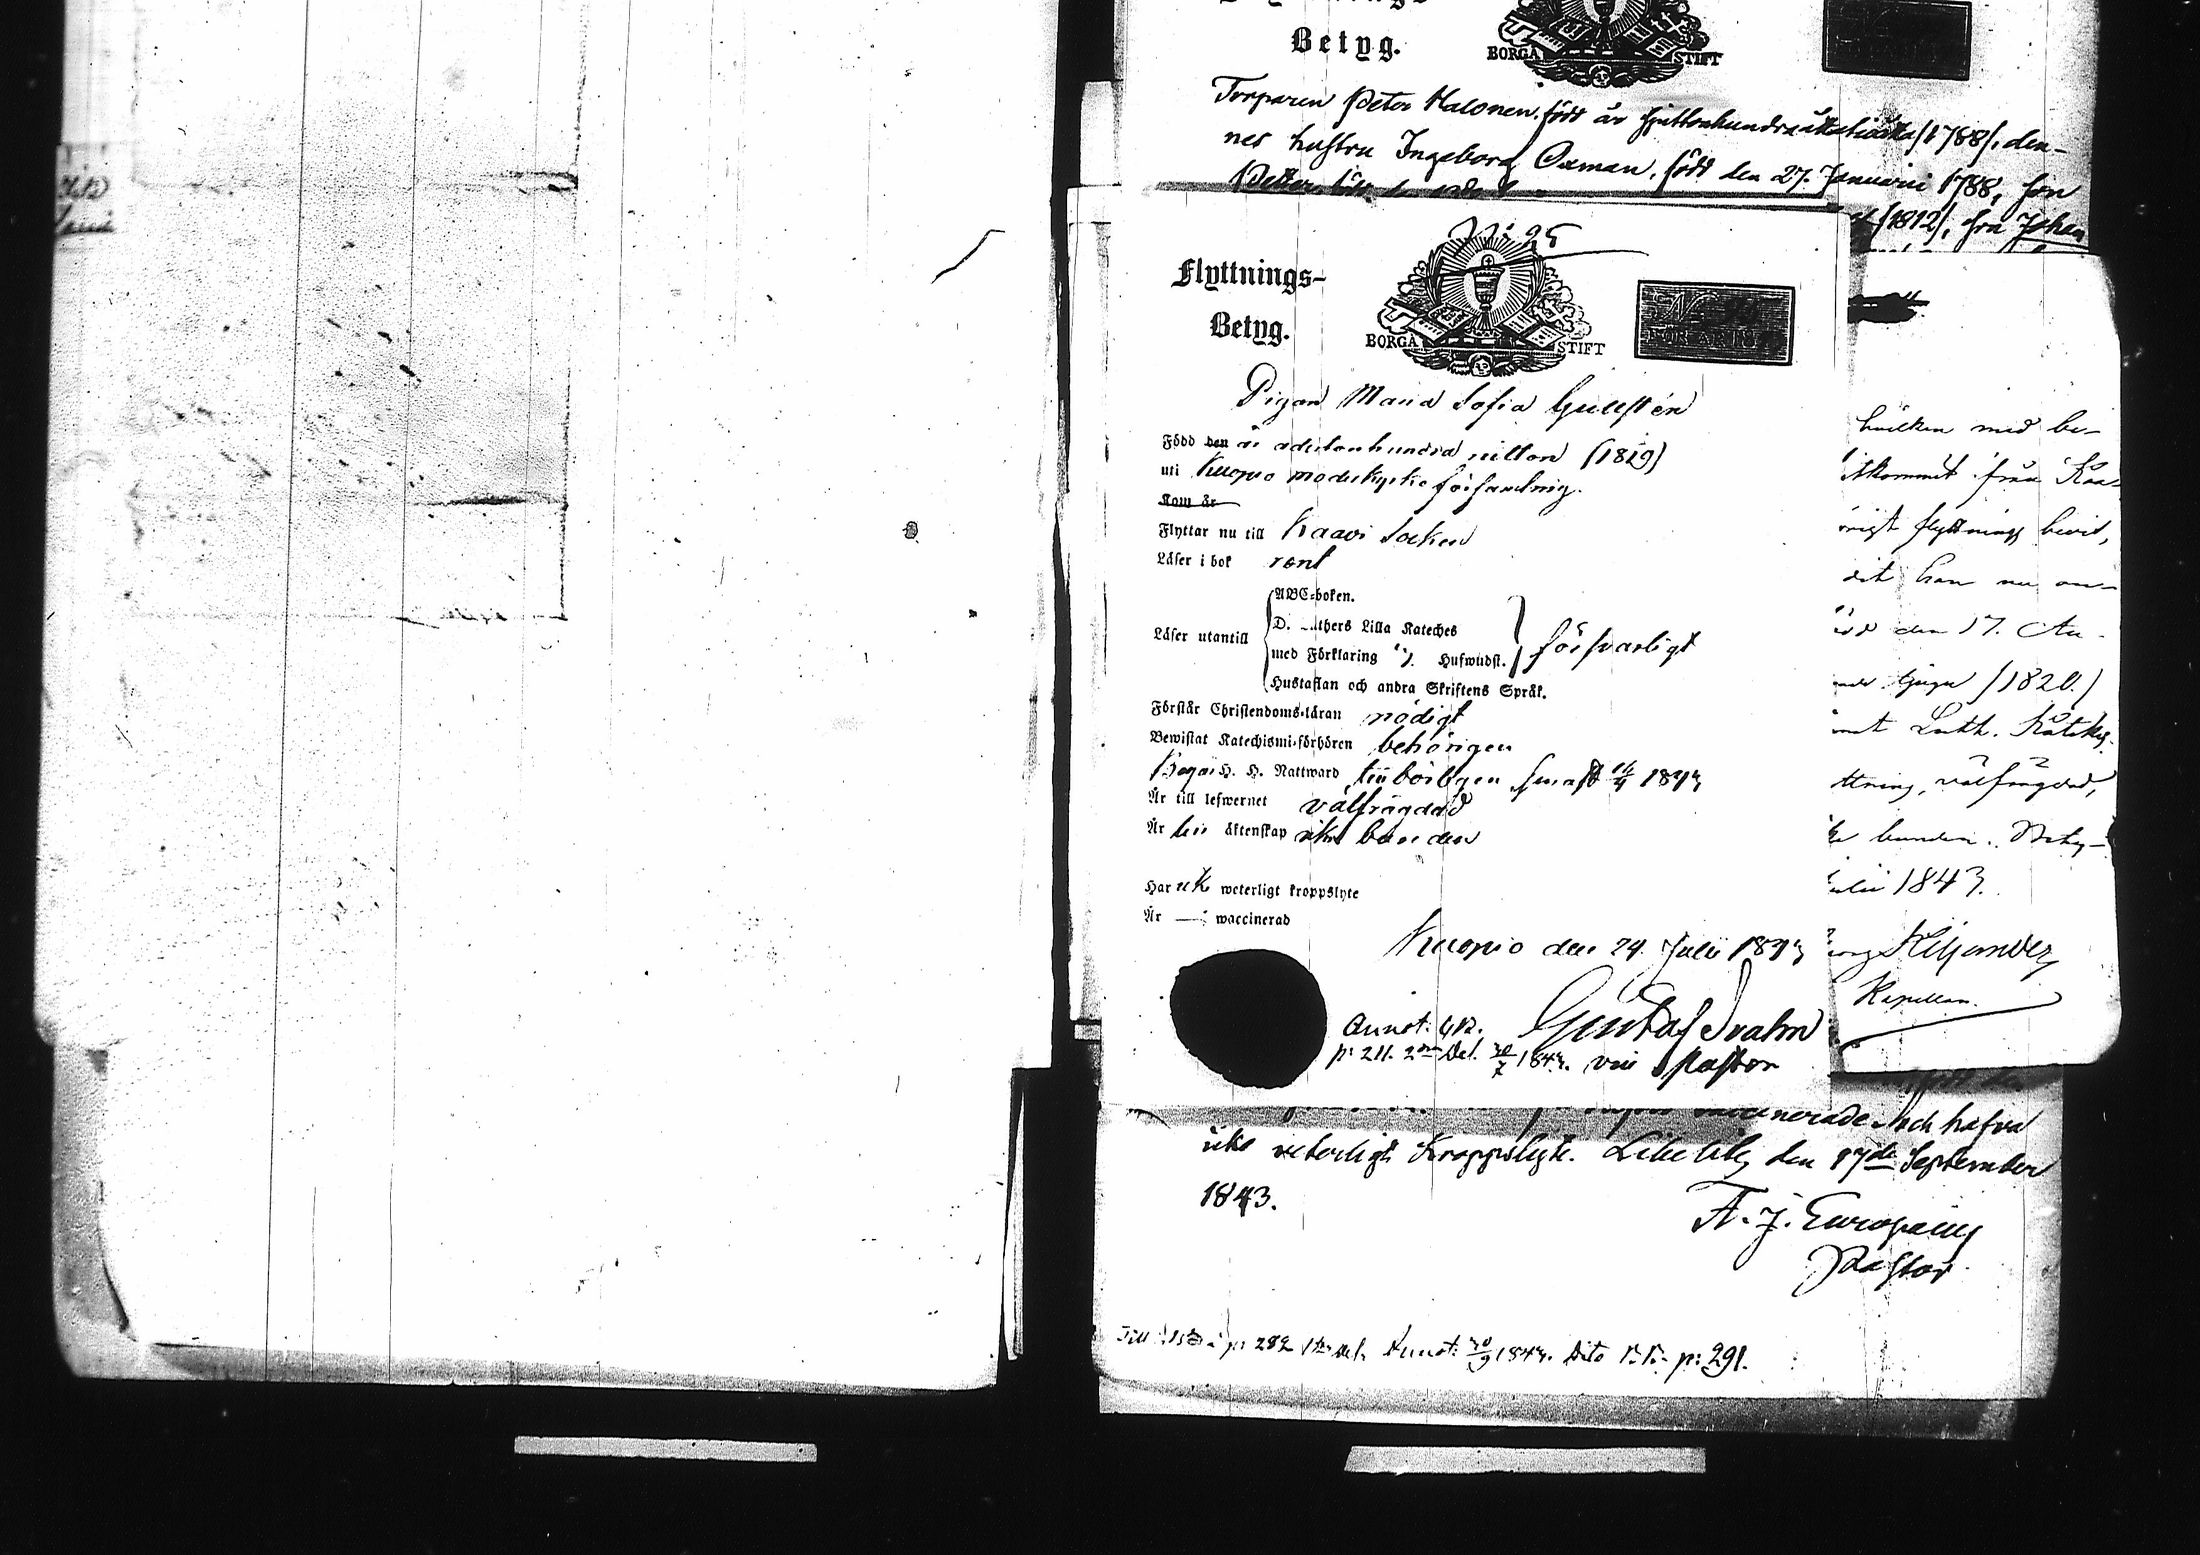 Betyg.
BORGÅ STIFT
Torparen Peter Halonen, född år sjuttonhundraåttatioåtta (1788), den-
nes hustru Ingeborg Oxman, född den 27. Januarii 1788, son
Petter, född
(1812), son Johan
N: 95
Flyttnings-
Betyg.
BORGÅ STIFT
Pigan Maria Sofia Gullstén
Född den år adertonhundra nitton (1819)
uti Kuopio moderkyrko församling.
Kom år
Flyttar nu till Kaavi Socken
Läser i bok rent
Läser utantill
ABC-boken.
D. Luthers Lilla Kateches
med Förklaring Hufwudst.
Hustaflan och andra Skriftens Språk.
försvarligt
Förstår Christendoms-läran nödigt
Bewistat Katechismi-förhören behörigen
Begår H. H. Nattward tillbörligen senast 16/4 1843
Är till lefwernet välfrägdad
Är till äktenskap icke bunden
Har ick weterligt kroppslyte
Är — waccinerad
Kuopio den 24. Julii 1843
Gustaf Svahn
vice Pastor
Annot:
p: 211. 2dra Del. 30/7 1843.
hvilken med be-
itkommit från Kaa-
flyttnings bevis,
dit han nu an-
den 17. Au-
tjugu (1820.)
Luth. Katekes.
ttning, välfrägdad,
bunden. Bety-
Julii 1843.
Kiljander
Kapellan.
vaccinerade och hafva
icke veterligt Kroppslyte. Libelitz den 17de September
1843.
A. J. Europaeus
Pastor
Till p: 282 1sta del. Annot: 30/9 1843. Dito p: 291.